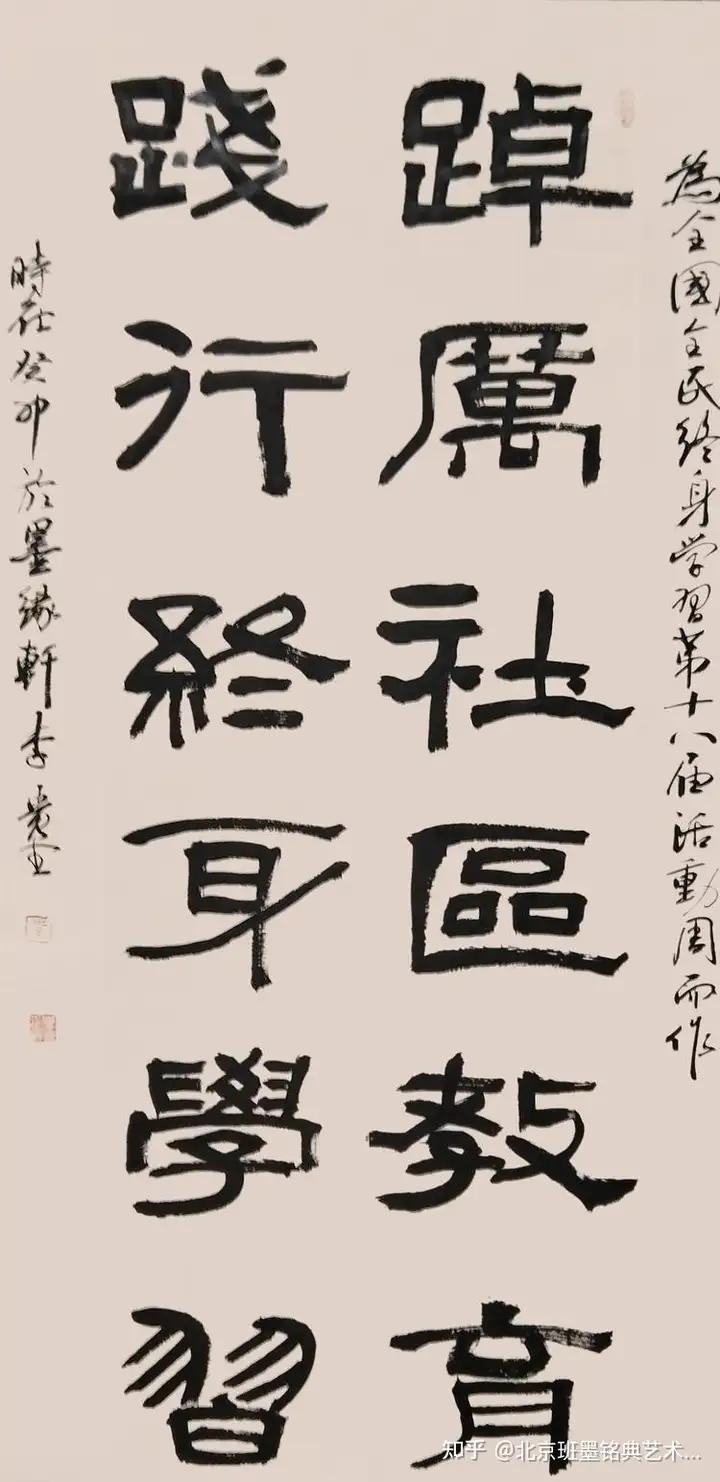 為全國全民終身学習第十八届活動周而作
踔厲社區教育
踐行終身學習
時在癸卯於墨緣軒李
知乎 @北京班墨铭典艺术...